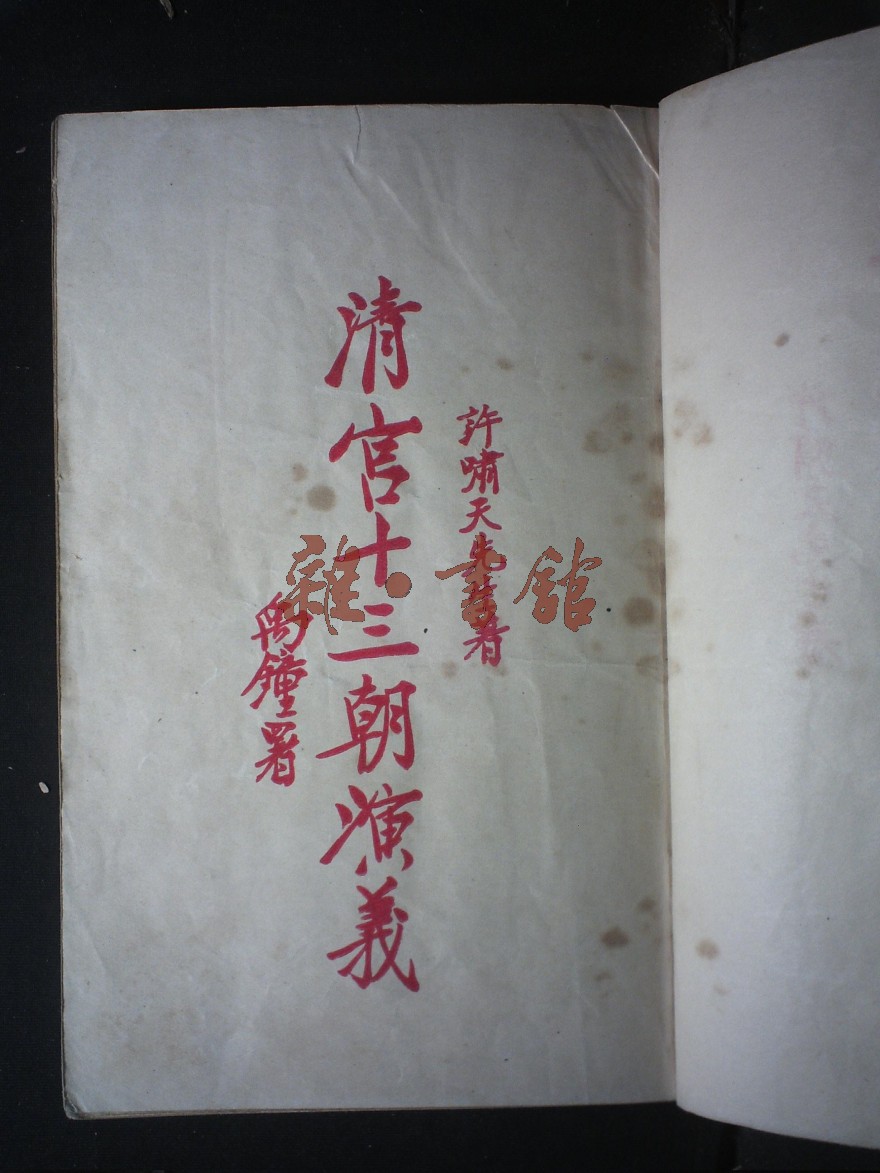 許嘯天先生着
清宮十三朝演義
禹鐘署
雜·書館